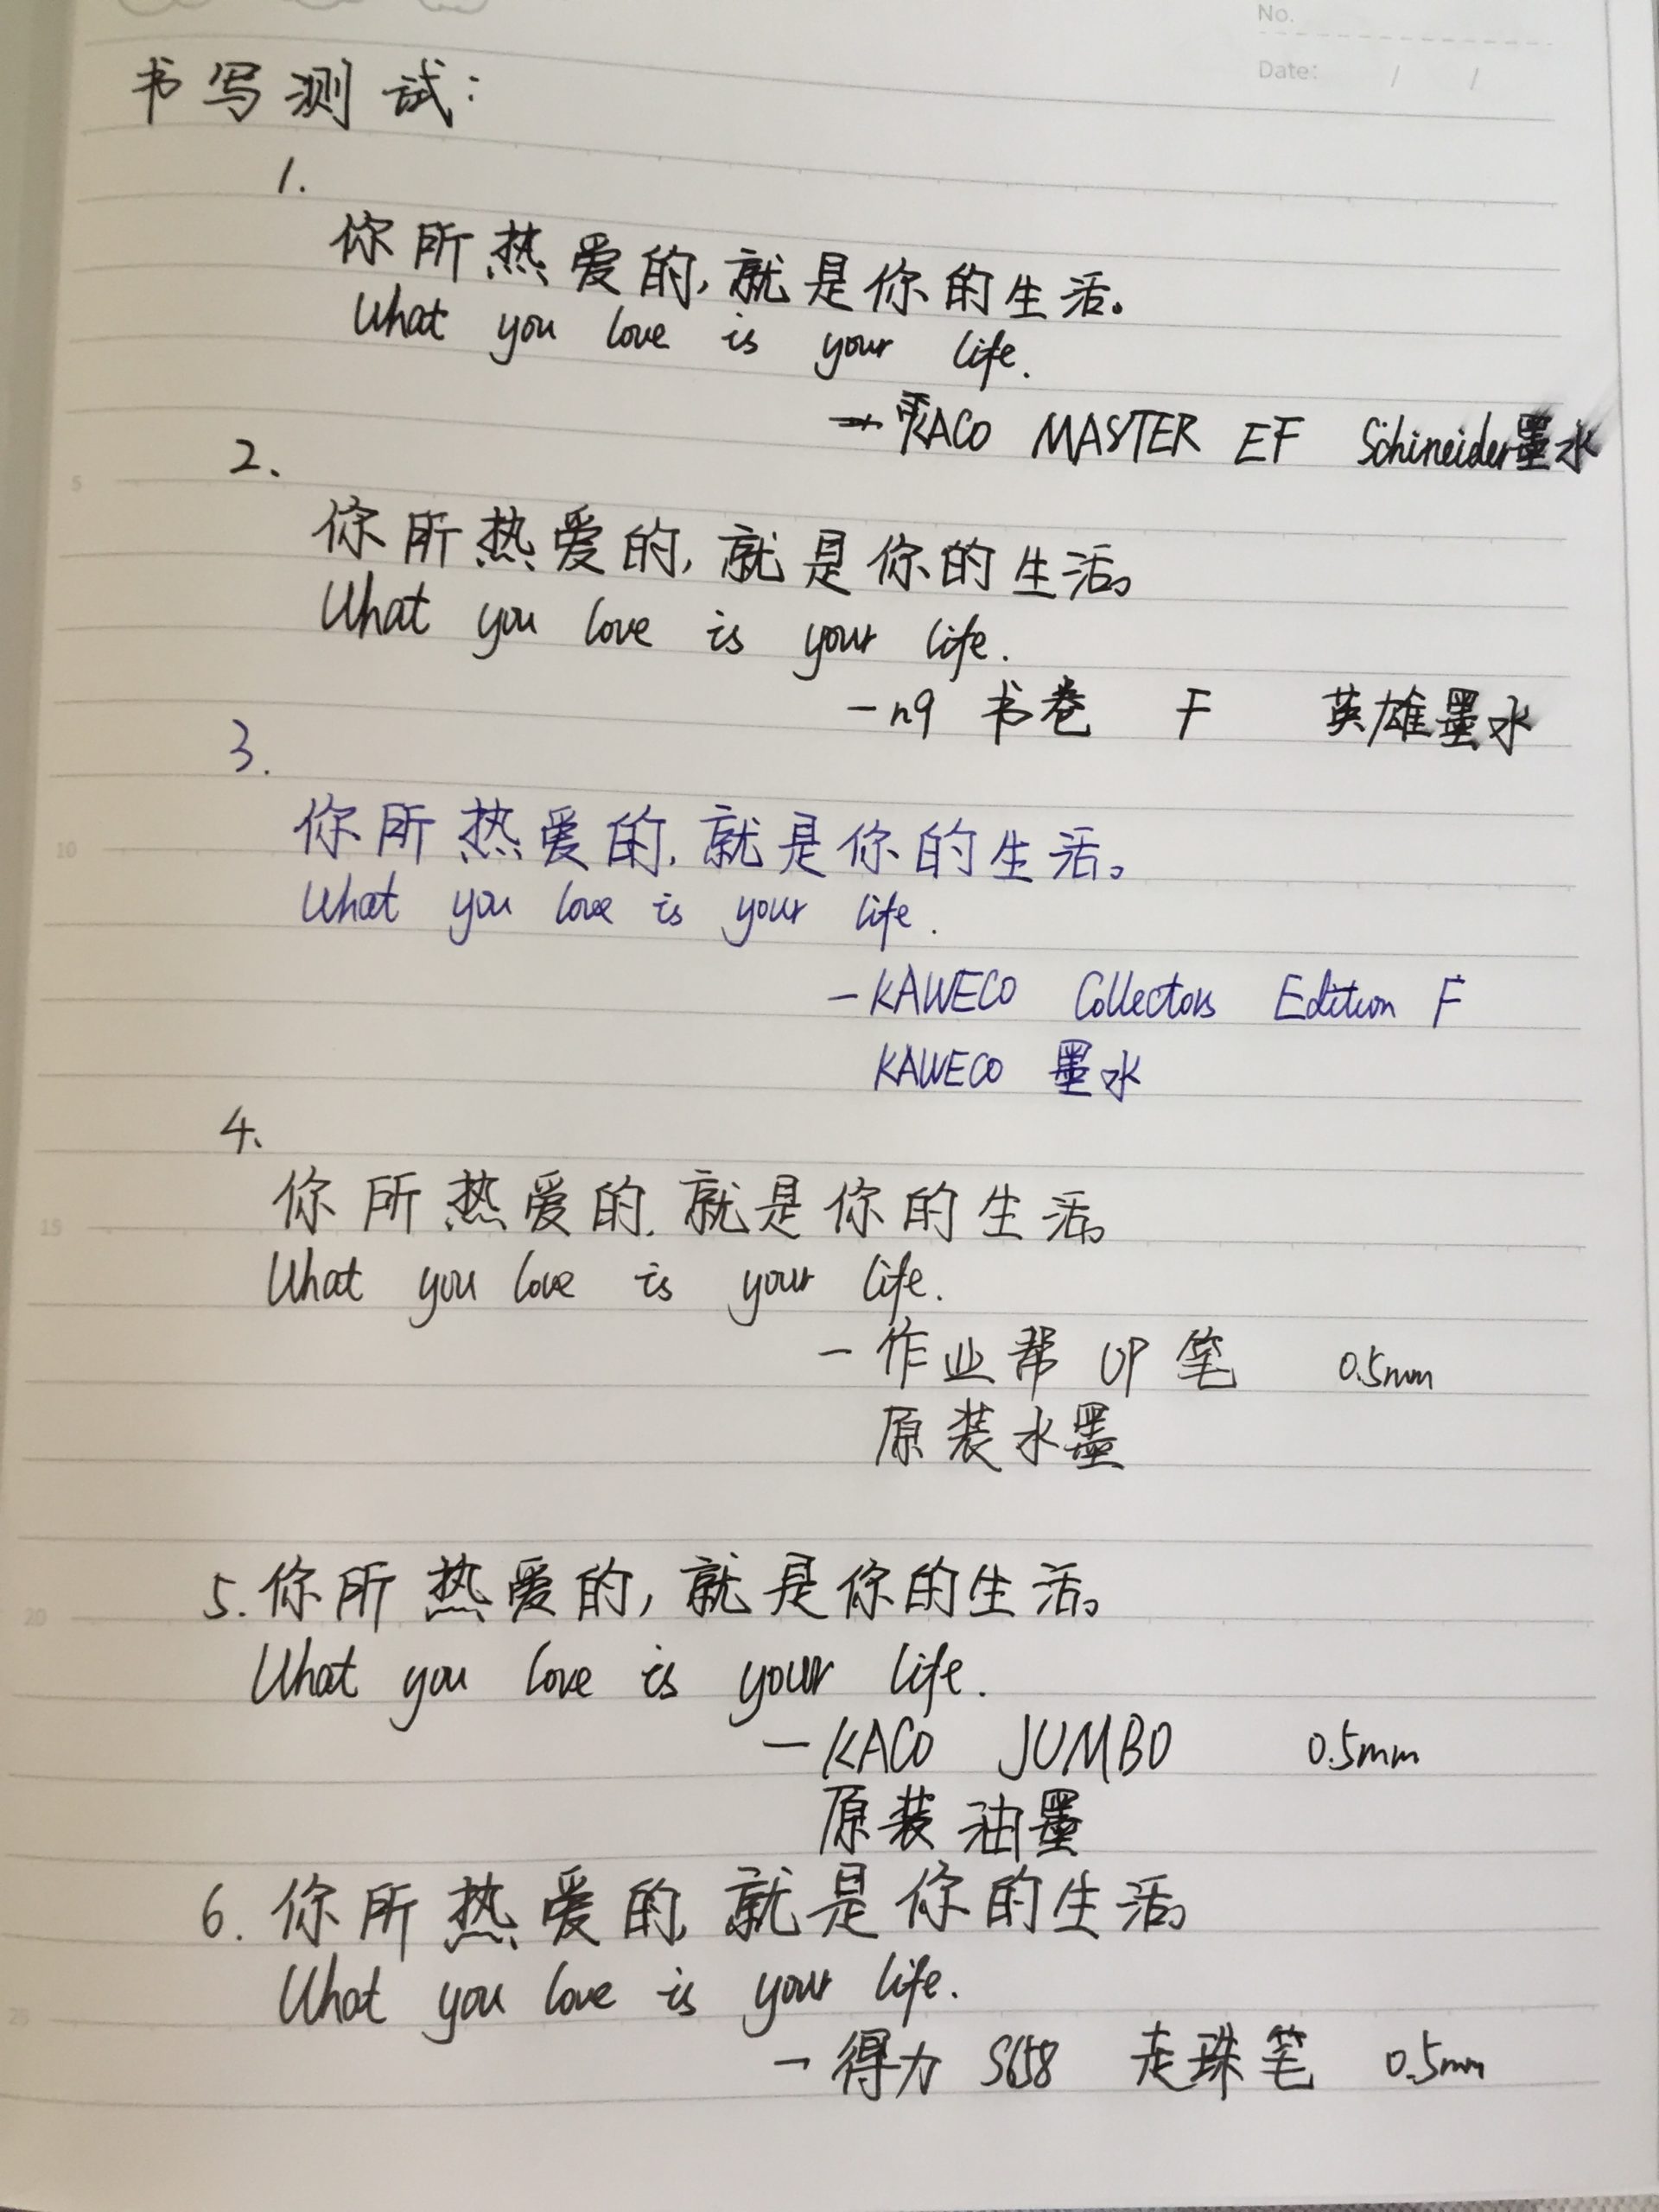 No.
Date: / /
书写测试:
1.
你所热爱的,就是你的生活。
What you love is your life.
— KACO MASTER EF Schineider墨水
2.
5
你所热爱的,就是你的生活。
What you love is your life.
— n9 书卷 F 英雄墨水
3.
10
你所热爱的,就是你的生活。
What you love is your life.
— KAWECO Collectors Edition F
KAWECO 墨水
4.
15
你所热爱的,就是你的生活。
What you love is your life.
— 作业帮 UP 笔 0.5mm
原装水墨
20
5. 你所热爱的,就是你的生活。
What you love is your life.
— KACO JUMBO 0.5mm
原装油墨
6. 你所热爱的,就是你的生活。
25
What you love is your life.
— 得力 S658 走珠笔 0.5mm